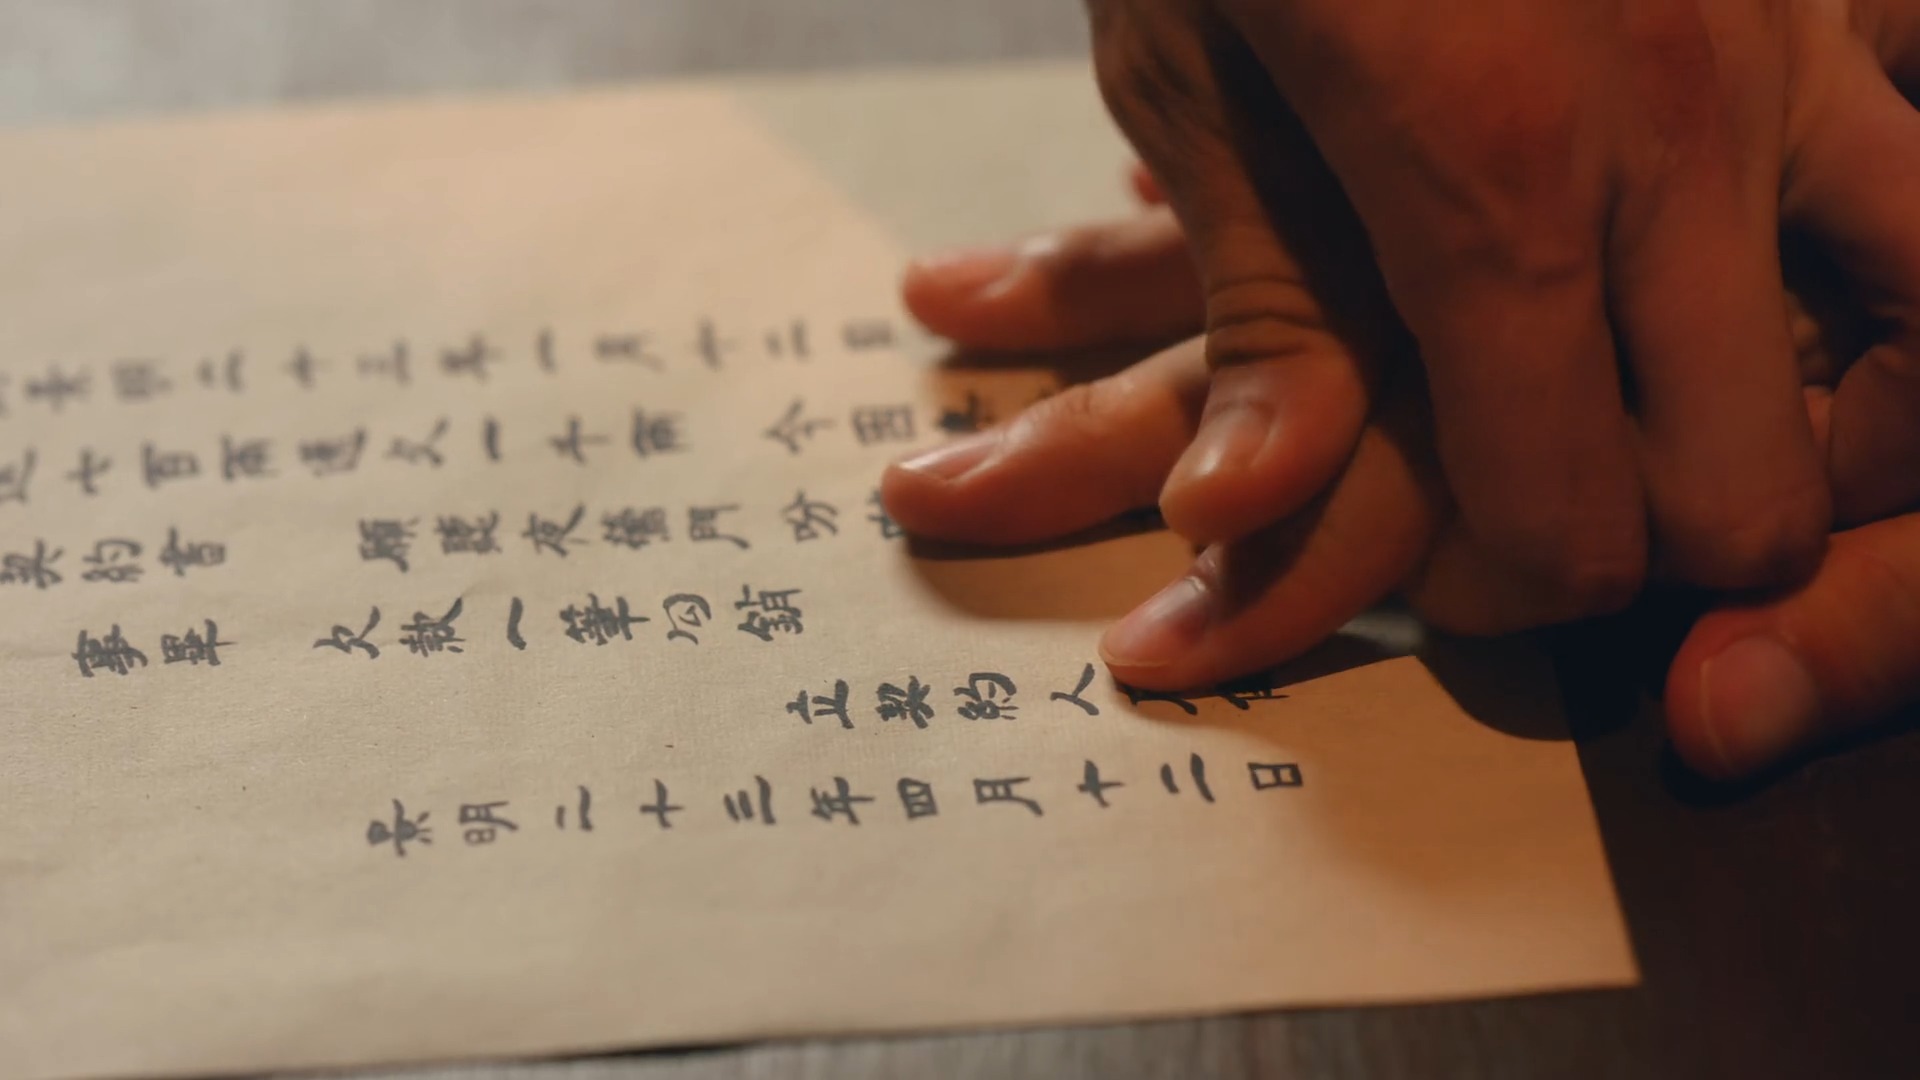 景明二十三年一月十二日
七百兩 欠一十兩 今因
契約書 願聽夜後門吩
事畢 欠款一筆勾銷
立契約人
景明二十三年四月十二日